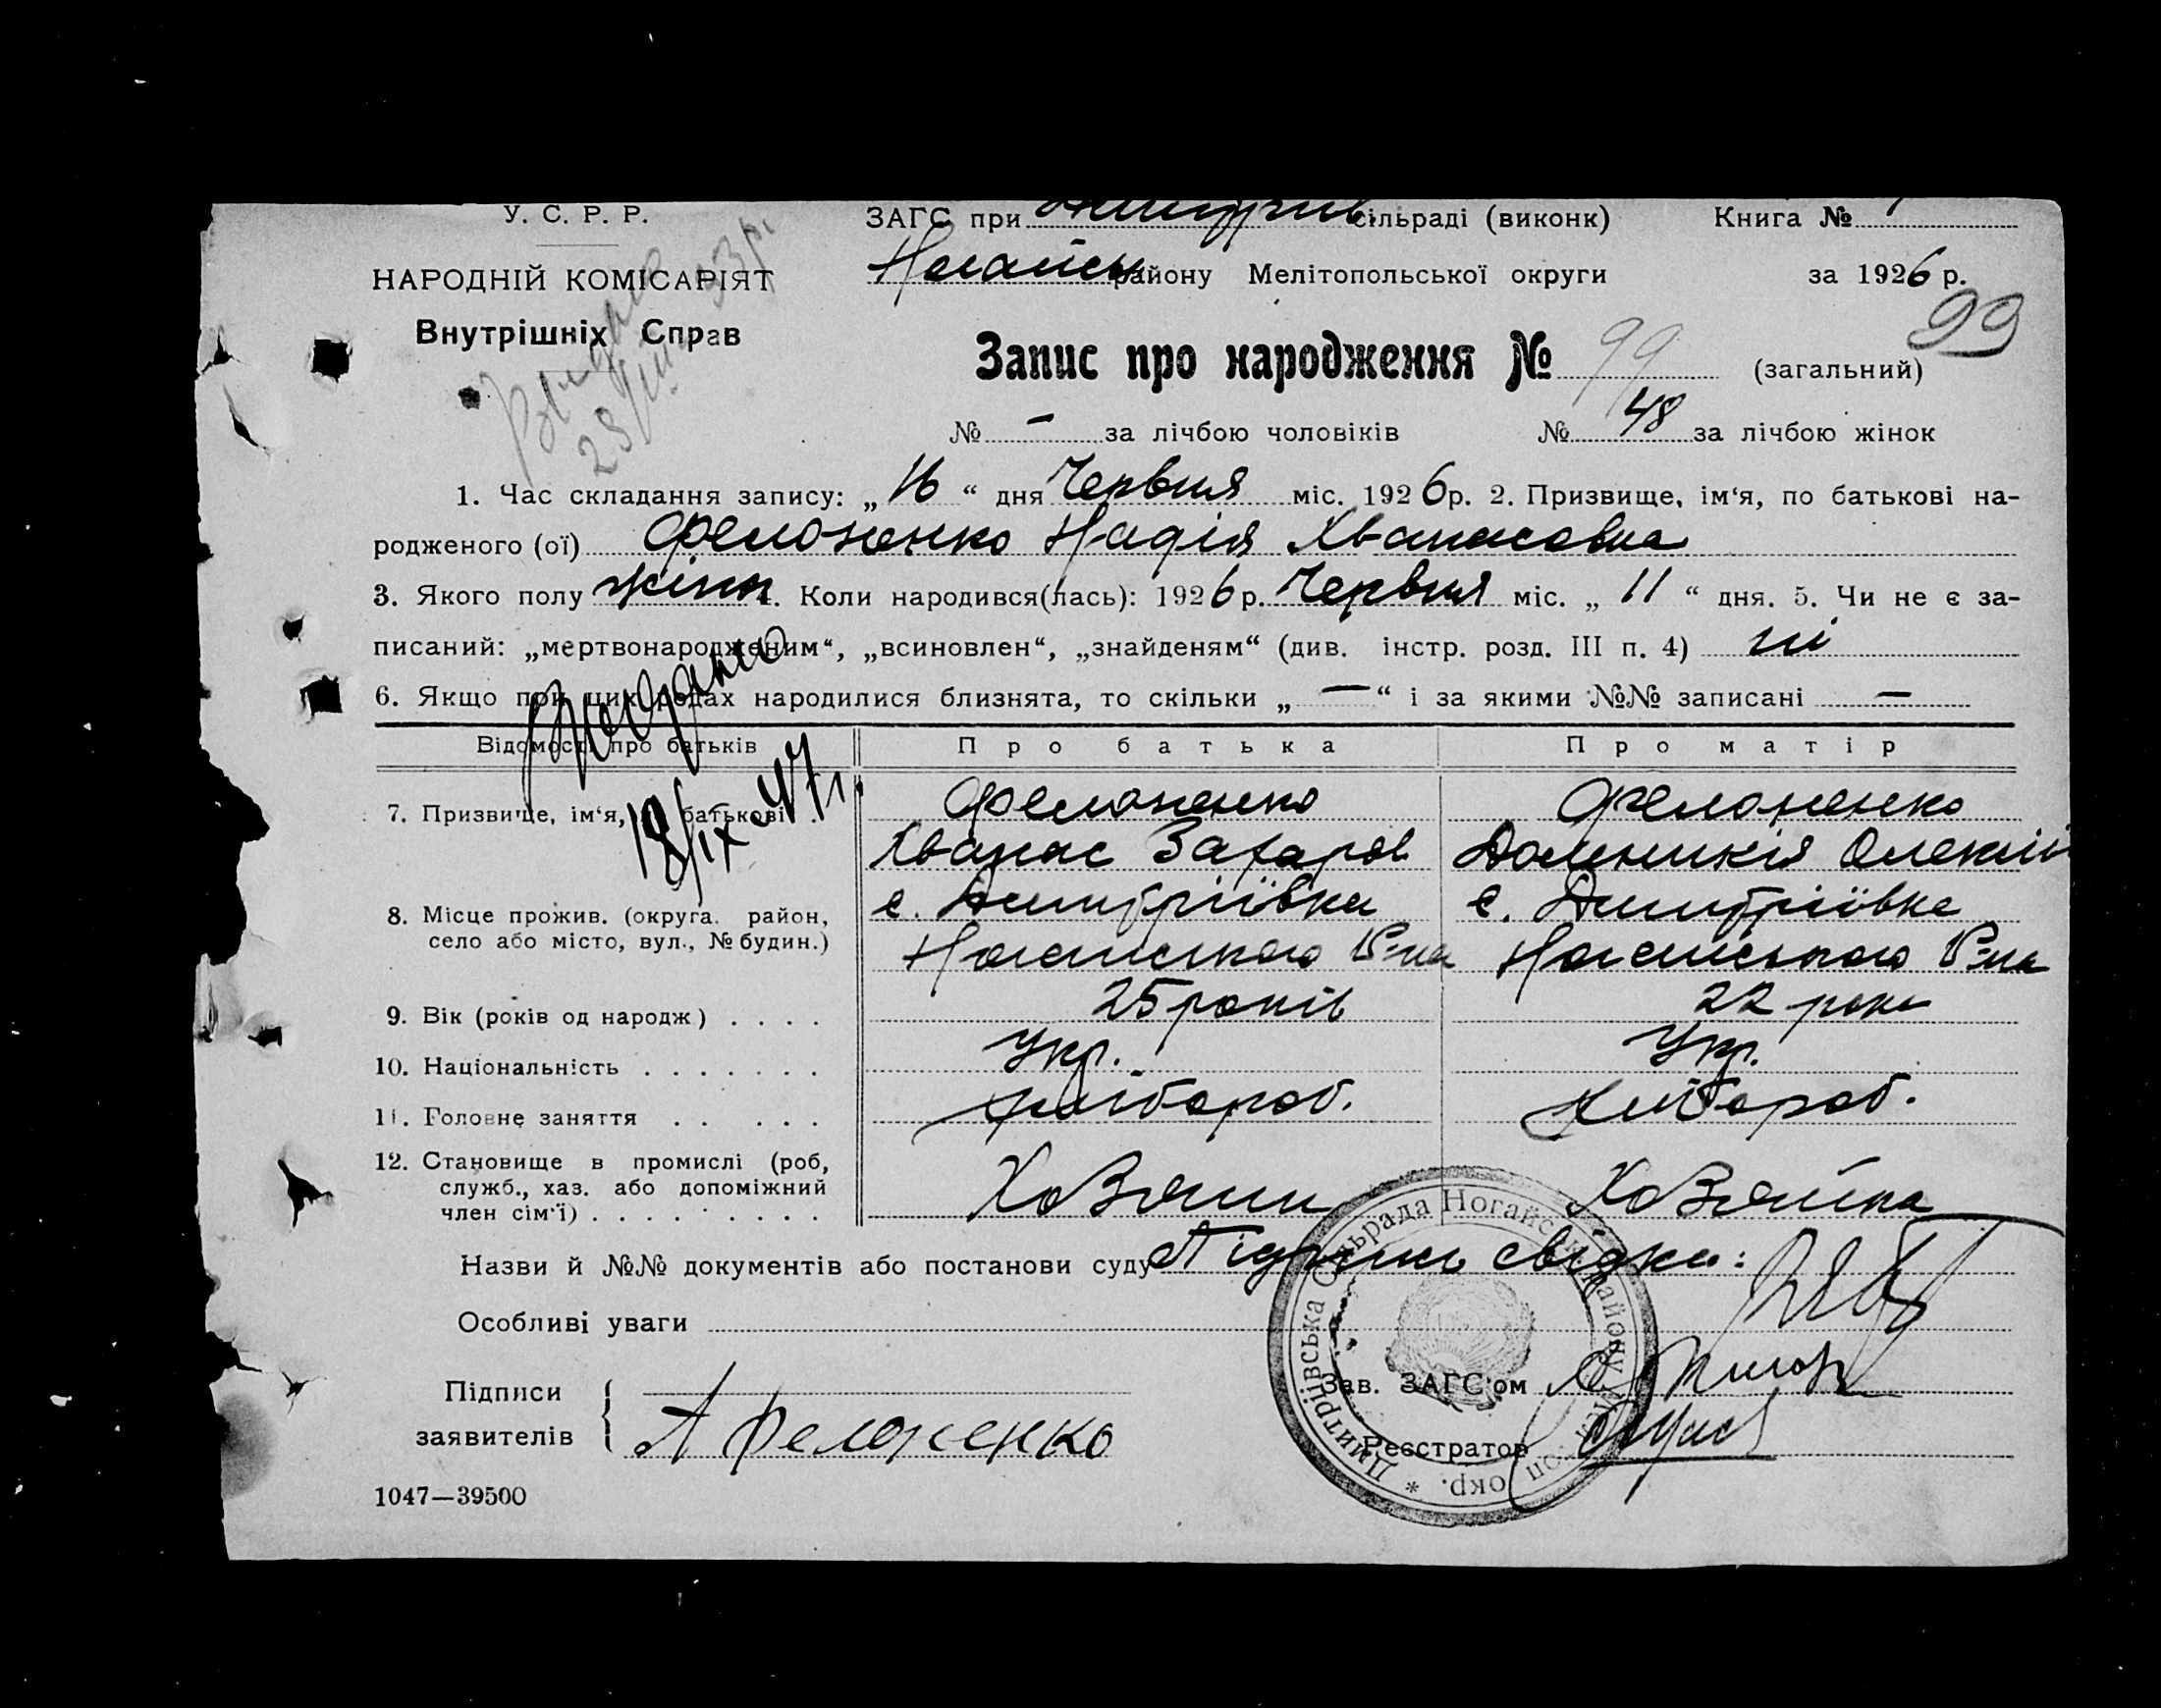 У. С. Р. Р.
НАРОДНІЙ КОМІСАРІЯТ
Внутрішніх Справ
Видано 33 р.
ЗАГС при Дмитрів. сільраді (виконк) Книга №
Ногайськ району Мелітопольської округи за 1926 р.
99
Запис про народження № 99 (загальний)
№ — за лічбою чоловіків № 48 за лічбою жінок
1. Час складання запису: „16“ дня Червня міс. 1926 р. 2. Призвище, ім‘я, по батькові на-
родженого (ої) Фелоненко Надія Хванасовна
3. Якого полу жіноч 4. Коли народився(лась): 1926 р. Червня міс. „11“ дня. 5. Чи не є за-
писаний: „мертвонародженим“, „всиновлен“, „знайденям“ (див. інстр. розд. III п. 4) ні
6. Якщо при цих родах народилися близнята, то скільки „—“ і за якими №№ записані —
18/IX 47 г.
Відомості про батьків Про батька Про матір
7. Призвище, ім‘я, батькові . Фелоненко Фелоненко
Хванас Захаров Олексіїв
8. Місце прожив. (округа, район, с. Дмитріївка с. Дмитріївка
село або місто, вул., № будин.) Ногайського Р-на Ногайського Р-на
9. Вік (років од народж) . . . . 25 років 22 роки
10. Національність . . . . . . . Укр. Укр.
11. Головне заняття . . . . . хлібороб. хлібороб.
12. Становище в промислі (роб,
служб., хаз. або допоміжний
член сім‘ї) . . . . . . . . . Хозяин Хозяйка
Назви й №№ документів або постанови суду Підписи свідки:
Особливі уваги
Підписи
заявителів А Фелоненко
Зав. ЗАГС‘ом
Реєстратор
Дмитрівська Сільрада Ногайськ. району Меліт оп окр. *
1047—39500